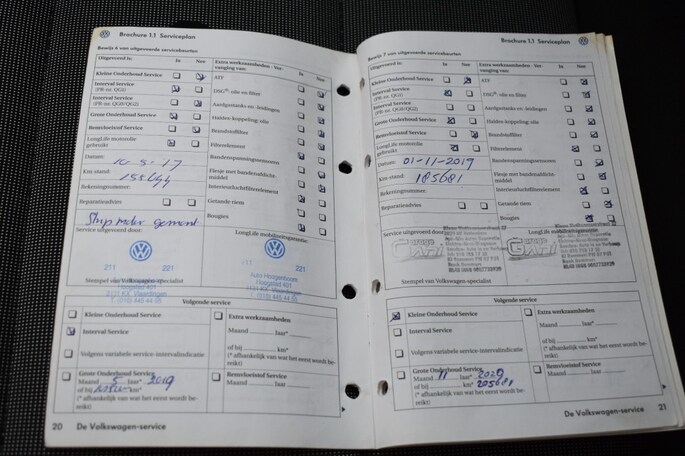 Brochure 1.1 Serviceplan
Bewijs 6 van uitgevoerde servicebeurten:
Uitgevoerd in: Ja Nee
Extra werkzaamheden - Vervanging van: Ja Nee
Kleine Onderhoud Service
Interval Service
(PR-nr. QG1)
Interval Service
(PR-nr. QG0/QG2)
Grote Onderhoud Service
Remvloeistof Service
LongLife motorolie
gebruikt
Datum: 10-5-17
Km-stand: 158644
Rekeningnummer:
Reparatieadvies
ATF
DSG®-olie en filter
Aardgastanks en -leidingen
Haldex-koppeling: olie
Brandstoffilter
Filterelement
Bandenspanningssensoren
Flesje met bandenafdichtmiddel
Interieurluchtfilterelement
Getande riem
Bougies
Service uitgevoerd door:
LongLife mobiliteitsgarantie:
211 221
221
Auto Hoogenboom
Hoogstad 401
3131 KX Vlaardingen
Stempel van Volkswagen specialist
Volgende service
Kleine Onderhoud Service
Interval Service
Volgens variabele service-intervalindicatie
Grote Onderhoud Service
Maand 5 jaar* 2019
of bij km*
(* afhankelijk van wat het eerst wordt bereikt)
Extra werkzaamheden
Maand jaar*
of bij km*
(* afhankelijk van wat het eerst wordt bereikt)
Remvloeistof Service
Maand jaar*
20 De Volkswagen-service
Brochure 1.1 Serviceplan
Bewijs 7 van uitgevoerde servicebeurten:
Uitgevoerd in: Ja Nee
Extra werkzaamheden - Vervanging van: Ja Nee
Kleine Onderhoud Service
Interval Service
(PR-nr. QG1)
Interval Service
(PR-nr. QG0/QG2)
Grote Onderhoud Service
Remvloeistof Service
LongLife motorolie
gebruikt
Datum: 01-11-2019
Km-stand: 185681
Rekeningnummer:
Reparatieadvies
ATF
DSG®-olie en filter
Aardgastanks en -leidingen
Haldex-koppeling: olie
Brandstoffilter
Filterelement
Bandenspanningssensoren
Flesje met bandenafdichtmiddel
Interieurluchtfilterelement
Getande riem
Bougies
Service uitgevoerd door:
LongLife mobiliteitsgarantie:
Garage
GATI
Garage
GATI
Stempel van Volkswagen specialist
Volgende service
Kleine Onderhoud Service
Interval Service
Volgens variabele service-intervalindicatie
Grote Onderhoud Service
Maand 11 jaar* 2020
of bij km* 205681
(* afhankelijk van wat het eerst wordt bereikt)
Extra werkzaamheden
Maand jaar*
of bij km*
(* afhankelijk van wat het eerst wordt bereikt)
Remvloeistof Service
Maand jaar*
De Volkswagen-service 21